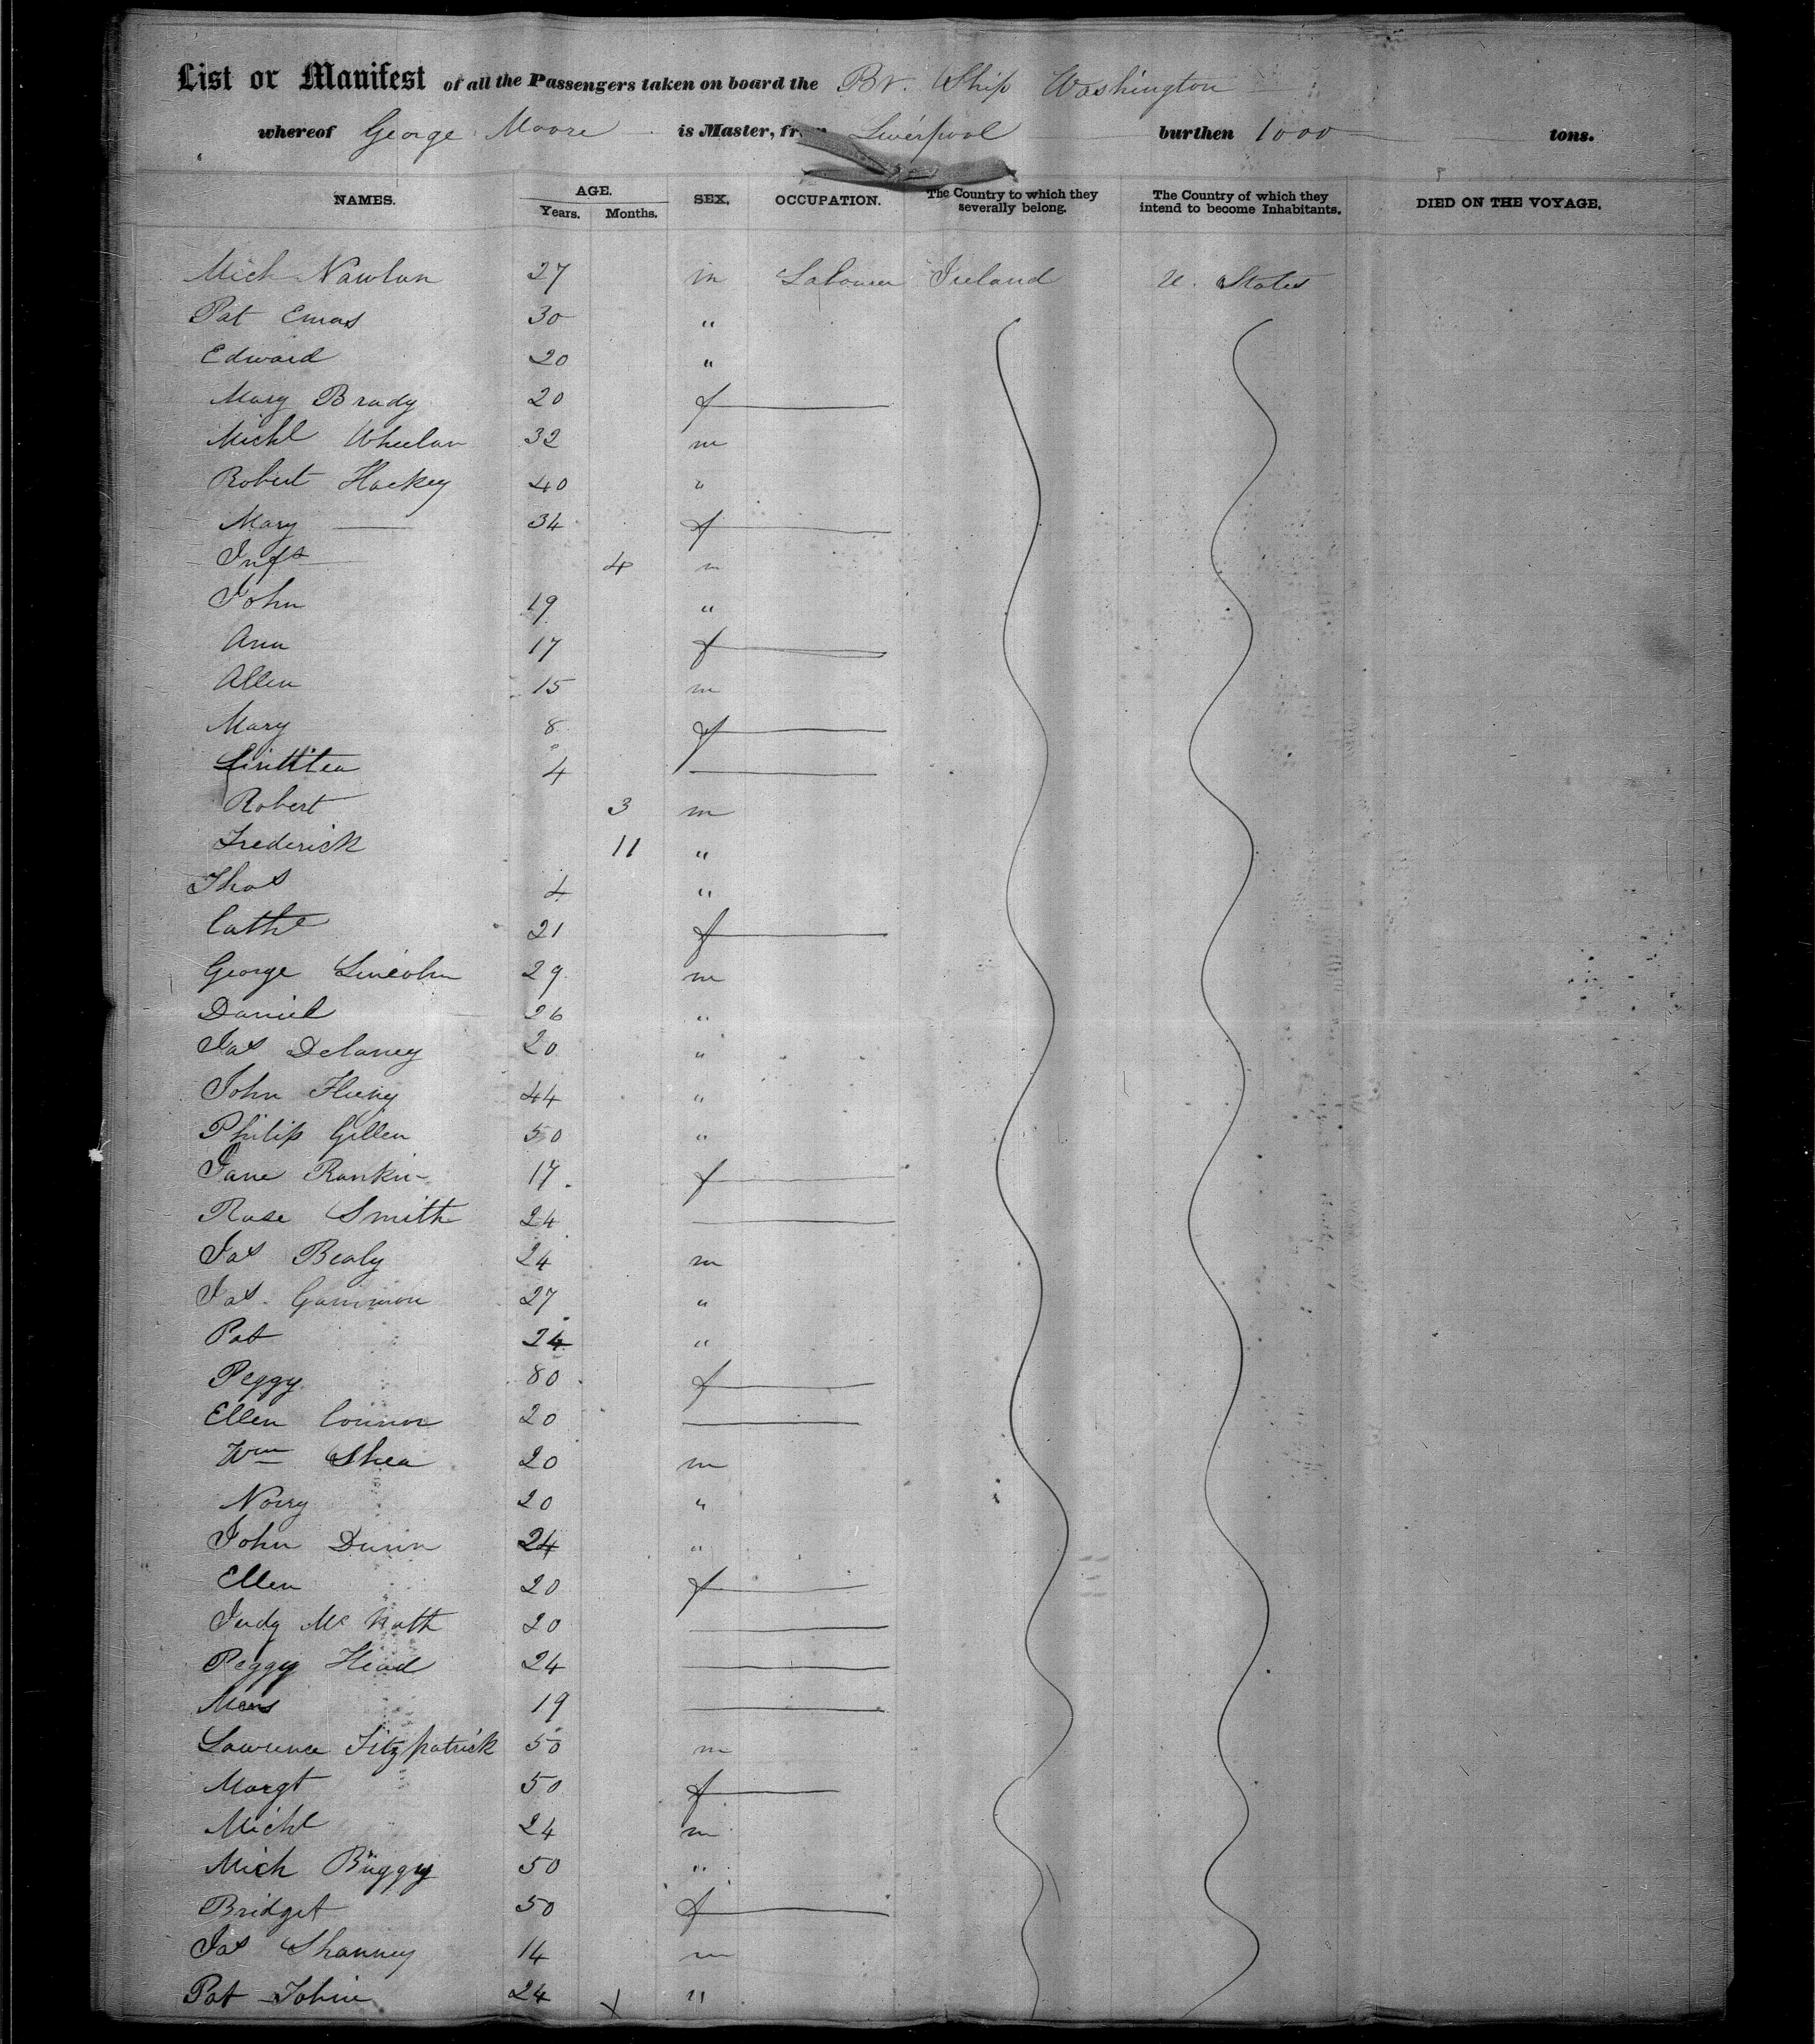 List or Manifest of all the Passengers taken on board the Br. Ship Washington
whereof George Moore is Master, from Liverpool burthen 1000 tons.
NAMES. AGE. SEX. OCCUPATION. The Country to which they severally belong. The Country of which they intend to become Inhabitants. DIED ON THE VOYAGE.
Years. Months.
Mich Nawlan 27 m Labourer Ireland U. States
Pat 30 "
Edward 20 "
Mary Brady 20 f
Michl Wheelan 32 m
Robert Hackey 40 "
Mary 34 f
Inft 4 m
John 19 "
Ann 17 f
Allen 15 m
Mary 8 f
4
Robert 3 m
Frederick 11 "
Thos 4 "
Cathe 21 f
George Lincoln 29 m
Daniel 26 "
Jas Delaney 20 "
John 44 "
Philip Gillen 50 "
Jane Rankin 17 f
Rose Smith 24
Jas Bealy 24 m
Jas Gammon 27 "
Pat 24 "
Peggy 80 f
Ellen Connor 20
Wm Shea 20 m
Norry 20 "
John Dunn 24 "
Ellen 20 f
Judy Mc Nath 20
Peggy Head 24
19
Lawrence Fitzpatrick 50 m
Margt 50 f
Michl 24 m
Mich Buggy 50 "
Bridget 50 f
Jas Shanney 14 m
Pat Tobin 24 x "